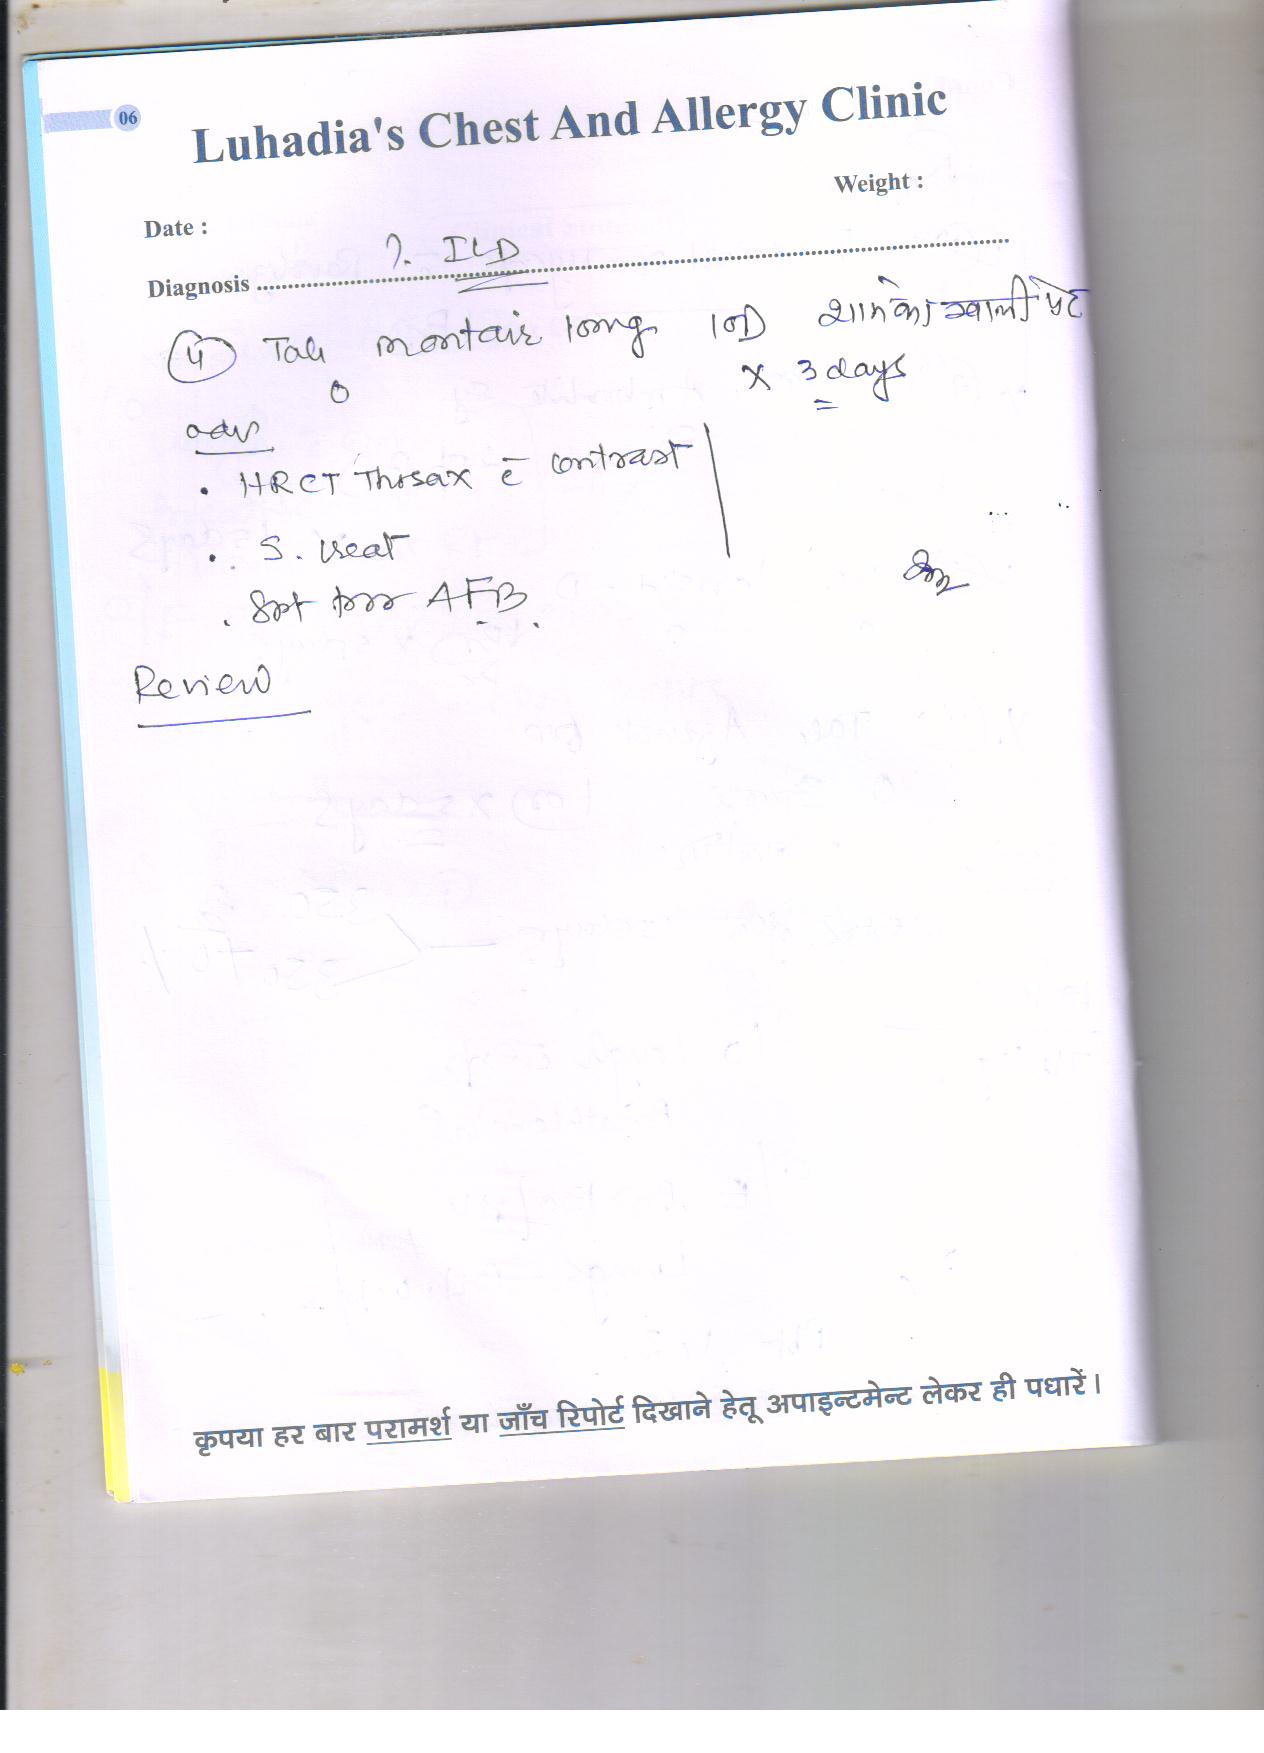 06
Luhadia's Chest And Allergy Clinic
Weight :
Date :
Diagnosis ?. ILD
4 Tab montair 10mg 1OD शाम को खाली पेट
x 3 days
adv
• HRCT Thorax c̄ contrast
• S. Urea
. Spt for AFB.
Review
कृपया हर बार परामर्श या जाँच रिपोर्ट दिखाने हेतू अपाइन्टमेन्ट लेकर ही पधारें।